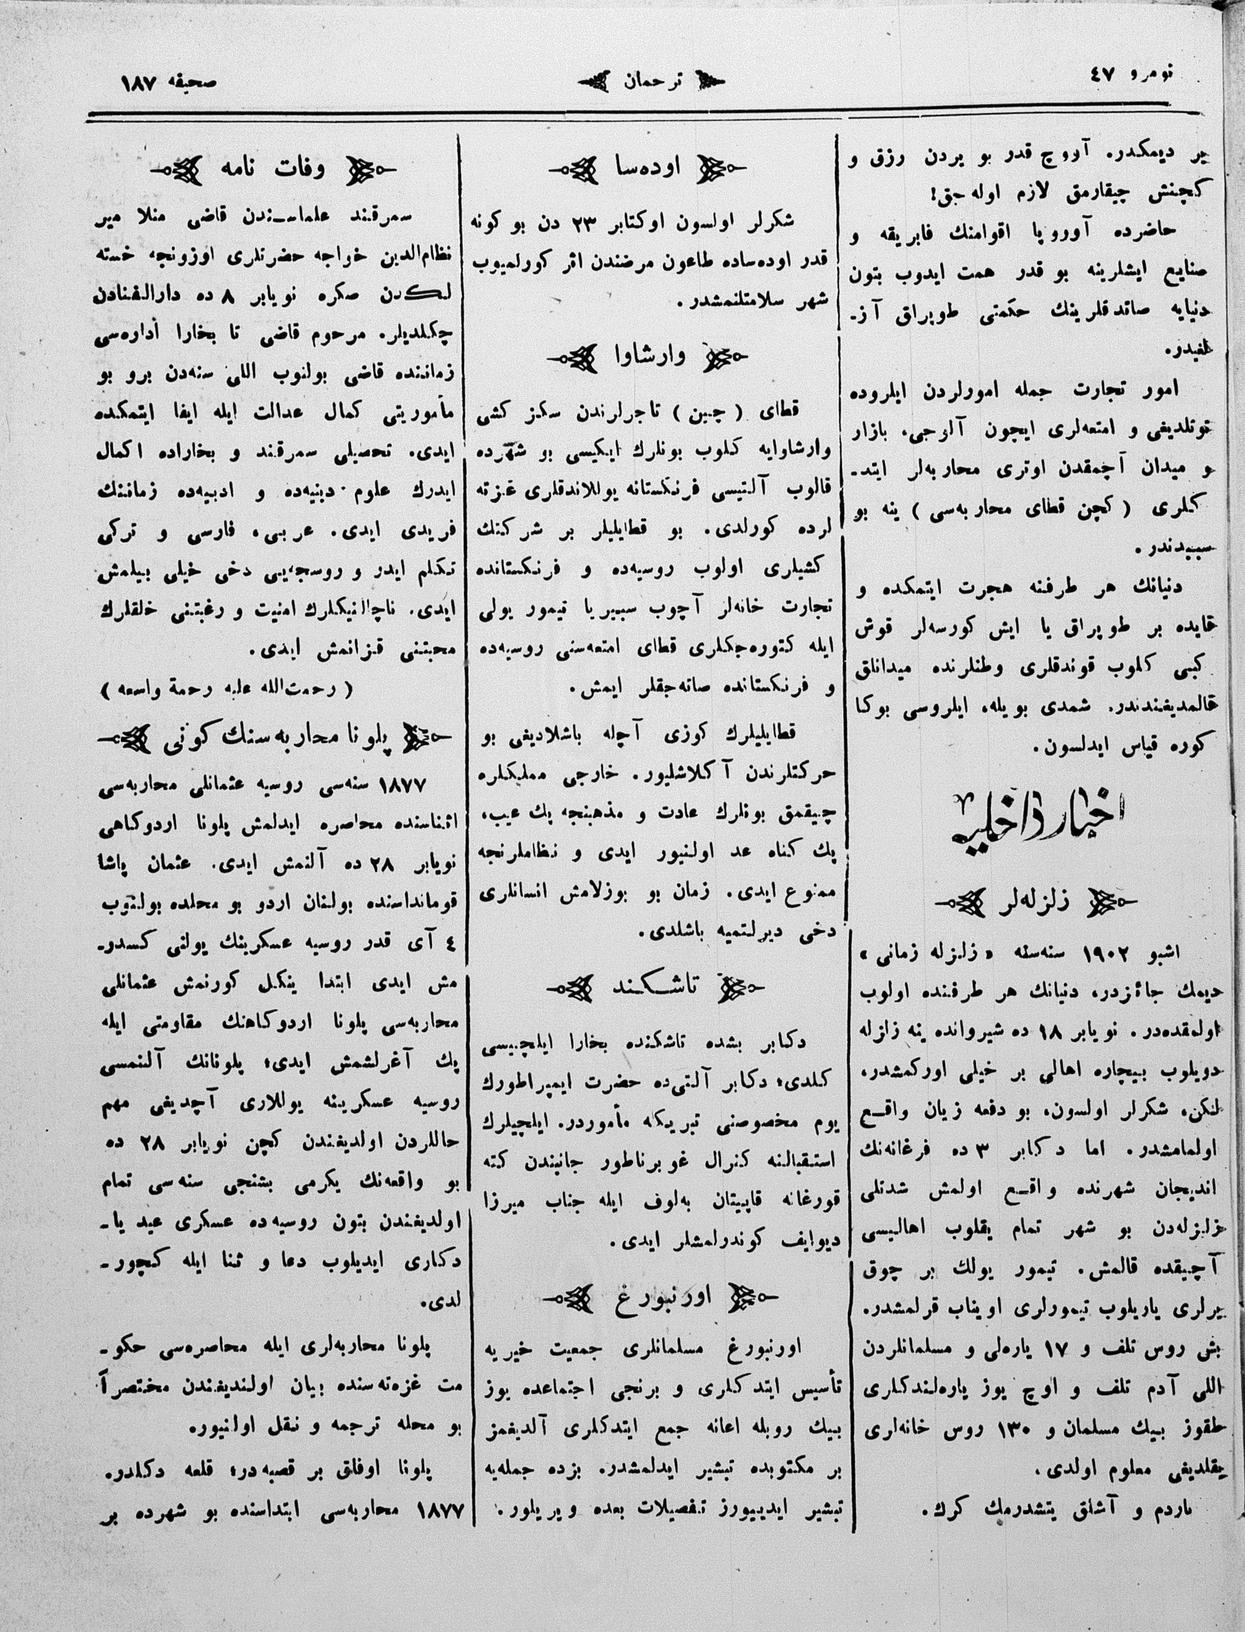 نومرو ٤٧
ترجمان
صحيفه ١٨٧
ير ديمكدر. آووچ قدر بو يردن رزق و
كچنش چيقارمق لازم اوله جق!
حاضرده آوروپا اقوامنك فابريقه و
صنايع ايشلرينه بو قدر همت ايدوب بتون
دنيايه صاتدقلرينك حكمتى طوپراق آز-
لغيدر.
امور تجارت جمله امورلردن ايلروده
توتلديغى و امتعه‌لرى ايچون آلوجى، بازار
و ميدان آچمقدن اوترى محاربه‌لر ايتد-
كلرى ( كچن قطاى محاربه‌سى ) ينه بو
سببدندر.
دنيانك هر طرفنه هجرت ايتمكده و
قايده بر طوپراق يا ايش كورسه‌لر قوش
كبى كلوب قوندقلرى وطنلرنده ميدانلق
قالمديغندندر. شمدى بويله، ايلروسى بوكا
كوره قياس ايدلسون.
اخبار داخليه
زلزله‌لر
اشبو ١٩٠٢ سنه‌سنه «زلزله زمانى»
ديمك جائزدر، دنيانك هر طرفنده اولوب
اولمقده‌در. نويابر ١٨ ده شيروانده ينه زلزله
دويلوب بيچاره اهالى بر خيلى اوركمشدر،
لنكن، شكرلر اولسون، بو دفعه زيان واقع
اولمامشدر. اما دكابر ٣ ده فرغانه‌نك
انديجان شهرنده واقع اولمش شدتلى
زلزله‌دن بو شهر تمام يقلوب اهاليسى
آچيقده قالمش. تيمور يولك بر چوق
يرلرى ياريلوب تيمورلرى اويناب قرلمشدر.
بش روس تلف و ١٧ ياره‌لى و مسلمانلردن
اللى آدم تلف و اوچ يوز ياره‌لندكلرى
طقوز بيك مسلمان و ١٣٠ روس خانه‌لرى
يقلديغى معلوم اولدى.
ياردم و آشلق يتشدرمك كرك.
اوده‌سا
شكرلر اولسون اوكتابر ٢٣ دن بو كونه
قدر اوده‌ساده طاعون مرضندن اثر كورلميوب
شهر سلامتلنمشدر.
وارشاوا
قطاى ( چين ) تاجرلرندن سكز كشى
وارشاوايه كلوب بونلرك ايكيسى بو شهرده
قالوب آلتيسى فرنكستانه يوللاندقلرى غزته
لرده كورلدى. بو قطايليلر بر شركتك
كشيلرى اولوب روسيه‌ده و فرنكستانده
تجارت خانه‌لر آچوب سيبيريا تيمور يولى
ايله كتوره‌جكلرى قطاى امتعه‌سنى روسيه‌ده
و فرنكستانده صاته‌جقلر ايمش.
قطايليلرك كوزى آچله باشلاديغى بو
حركتلرندن آكلاشليور. خارجى مملكتلره
چيقمق بونلرك عادت و مذهبنجه پك عيب،
پك كناه عد اولنيور ايدى و نظاملرنجه
ممنوع ايدى. زمان بو بوزلامش انسانلرى
دخى ديرلتميه باشلدى.
تاشكند
دكابر بشده تاشكنده بخارا ايلچيسى
كلدى؛ دكابر آلتى‌ده حضرت ايمپراطورك
يوم مخصوصنى تبريكه مأموردر. ايلچيلرك
استقبالنه كنرال غوبرناطور جانبندن كته
قورغانه قاپيتان به‌لوف ايله جناب ميرزا
ديوايف كوندرلمشلر ايدى.
اورنبورغ
اورنبورغ مسلمانلرى جمعيت خيريه
تأسيس ايتدكلرى و برنجى اجتماعده يوز
بيك روبله اعانه جمع ايتدكلرى آلديغمز
بر مكتوبده تبشير ايدلمشدر. بزده جمله‌يه
تبشير ايدييورز تفصيلات بعده ويريلور.
وفات نامه
سمرقند علماسندن قاضى منلا مير
نظام‌الدين خواجه حضرتلرى اوزونجه خسته
لكدن صكره نويابر ٨ ده دارالفنادن
چكلديلر. مرحوم قاضى تا بخارا اداره‌سى
زماننده قاضى بولنوب اللى سنه‌دن برو بو
مأموريتى كمال عدالت ايله ايفا ايتمكده
ايدى. تحصيلى سمرقند و بخاراده اكمال
ايدرك علوم دينيه‌ده و ادبيه‌ده زماننك
فريدى ايدى. عربى، فارسى و تركى
تكلم ايدر و روسجه‌يى دخى خيلى بيلمش
ايدى. ناچالنيكلرك امنيت و رغبتنى خلقلرك
محبتنى قزانمش ايدى.
( رحمت‌الله عليه رحمة واسعه )
پلونا محاربه‌سنك كونى
١٨٧٧ سنه‌سى روسيه عثمانلى محاربه‌سى
اثناسنده محاصره ايدلمش پلونا اردوكاهى
نويابر ٢٨ ده آلنمش ايدى. عثمان پاشا
قومانداسنده بولنان اردو بو محلده بولنوب
٤ آى قدر روسيه عسكرينك يولنى كسدو-
مش ايدى ابتدا ينكل كورنمش عثمانلى
محاربه‌سى پلونا اردوكاهنك مقاومتى ايله
پك آغرلشمش ايدى؛ پلونانك آلنمسى
روسيه عسكرينه يوللارى آچديغى مهم
حاللردن اولديغندن كچن نويابر ٢٨ ده
بو واقعه‌نك يكرمى بشنجى سنه‌سى تمام
اولديغندن بتون روسيه‌ده عسكرى عيد يا-
دكارى ايديلوب دعا و ثنا ايله كچور-
لدى.
پلونا محاربه‌لرى ايله محاصره‌سى حكو-
مت غزه‌ته‌سنده بيان اولنديغندن مختصرآ
بو محله ترجمه و نقل اولنيور.
پلونا اوفلق بر قصبه‌در؛ قلعه دكلدر.
١٨٧٧ محاربه‌سى ابتداسنده بو شهرده بر